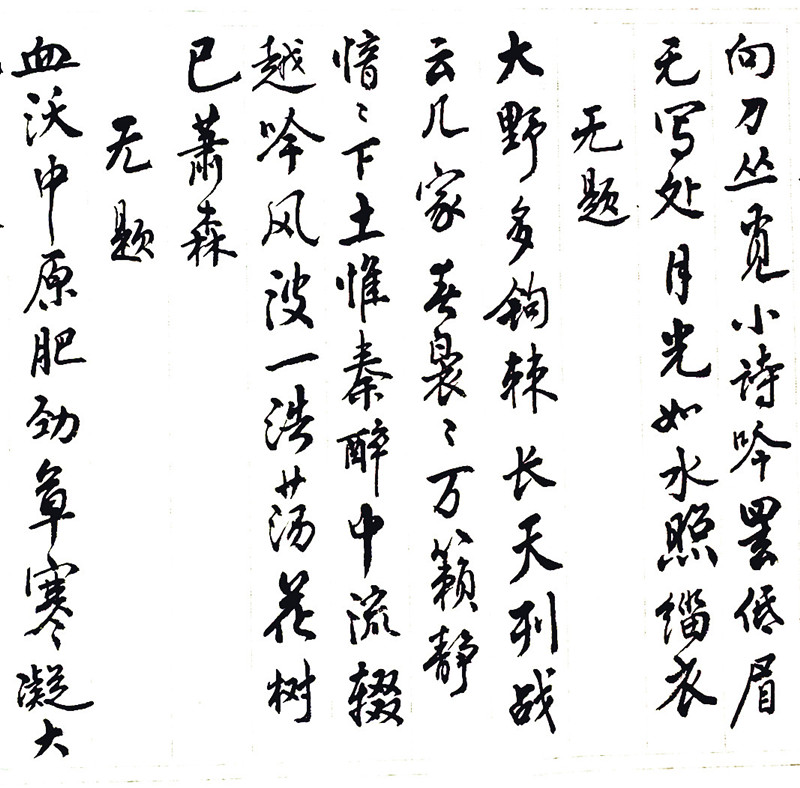 向刀丛觅小诗吟罢低眉
无写处月光如水照缁衣
无题
大野多钩棘长天列战
云几家春袅々万籁静
愔々下土惟秦醉中流辍
越吟风波一浩荡花树
已萧森
无题
血沃中原肥劲草寒凝大